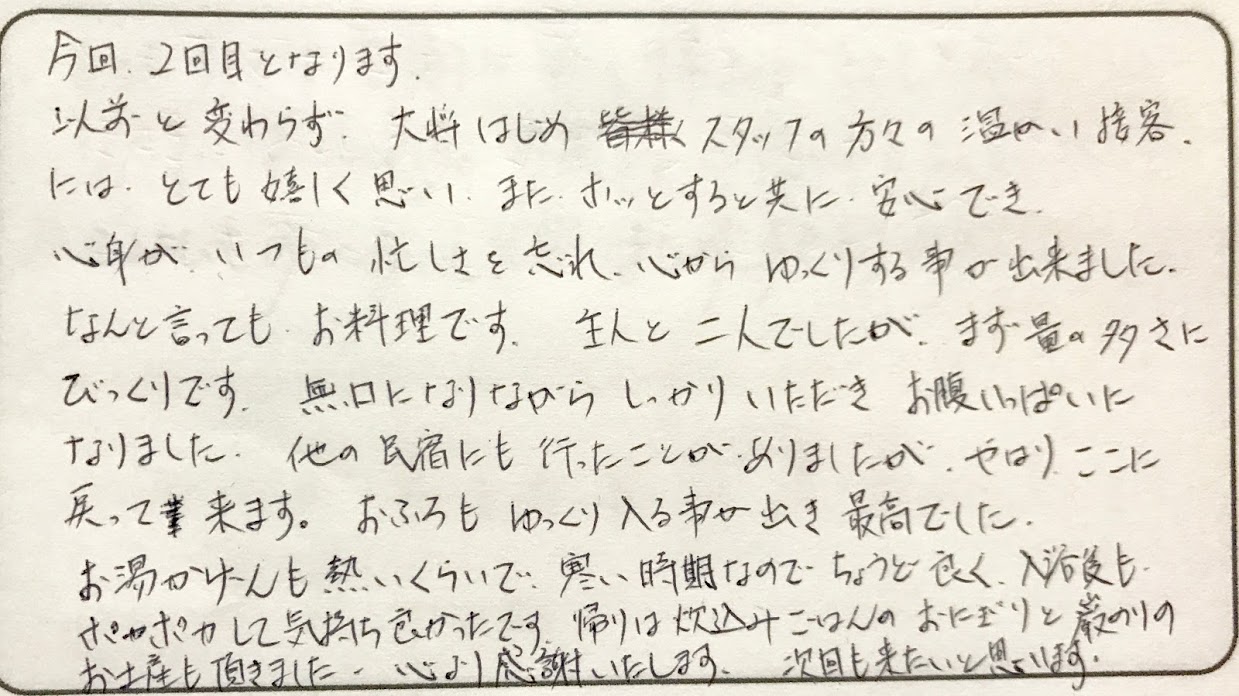 今回、2回目となります。
以前と変わらず、大将はじめ スタッフの方々の温かい接客、
には、とても嬉しく思い、また、ホッとすると共に、安心でき、
心身が、いつもの忙しさを忘れ、心からゆっくりする事が出来ました。
なんと言っても、お料理です。主人と二人でしたが、まず量の多さに
びっくりです。無口になりながらしっかりいただきお腹いっぱいに
なりました。他の民宿にも行ったことがありましたが、やはりここに
戻って来ます。おふろもゆっくり入る事が出き最高でした。
お湯かげんも熱いくらいで、寒い時期なのでちょうど良く、入浴後も、
ポカポカして気持ち良かったです。帰りは炊込みごはんのおにぎりと岩のりの
お土産も頂きました。心より感謝いたします。次回も来たいと思います。